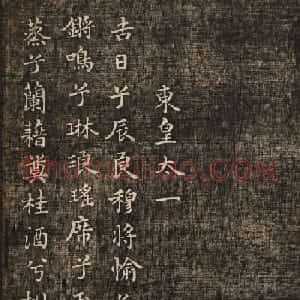 東皇太一
吉日兮辰良穆將愉兮
鏘鳴兮琳琅瑤席兮
蒸兮蘭藉奠桂酒兮